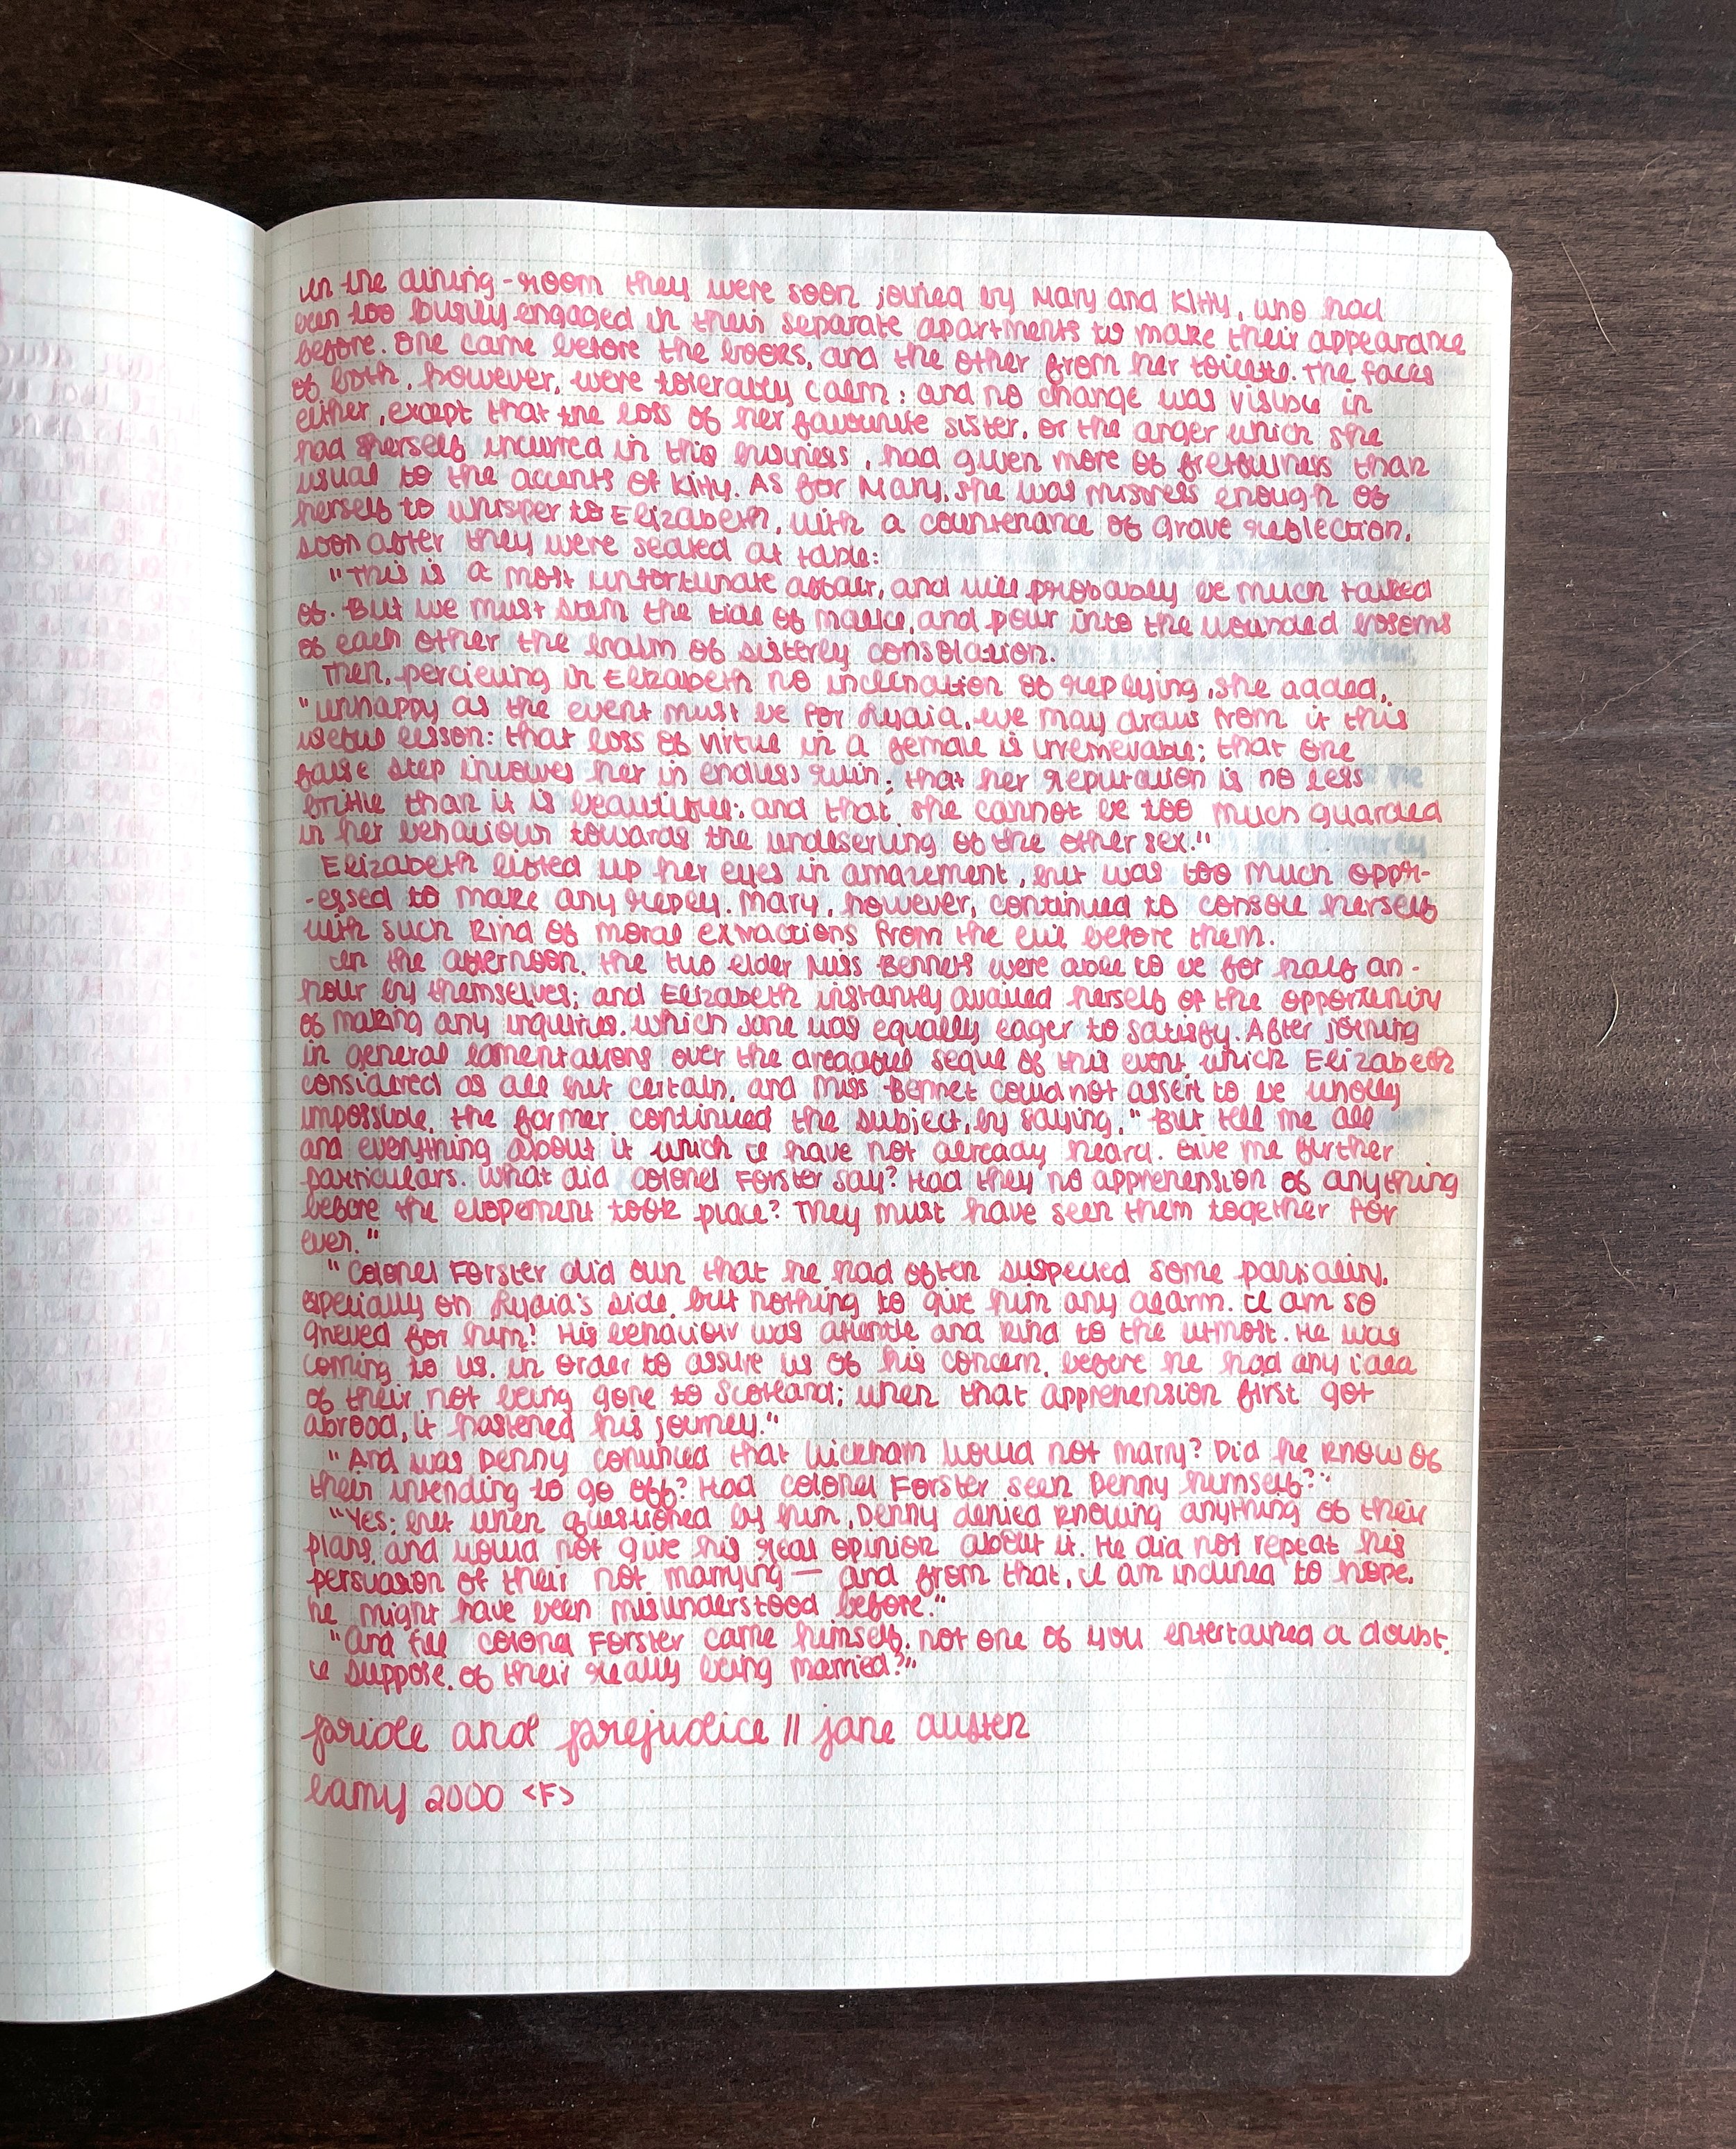 In the dining-room they were soon joined by Mary and Kitty, who had
been too busily engaged in their separate apartments to make their appearance
before. One came before the books, and the other from her toilette. The faces
of both, however, were tolerably calm; and no change was visible in
either, except that the loss of her favourite sister, or the anger which she
had herself incurred in this business, had given more of fretfulness than
usual to the accents of Kitty. As for Mary, she was mistress enough of
herself to whisper to Elizabeth, with a countenance of grave reflection,
soon after they were seated at table:
"This is a most unfortunate affair, and will probably be much talked
of. But we must stem the tide of malice, and pour into the wounded bosoms
of each other the balm of sisterly consolation.
Then, percieving in Elizabeth no inclination of replying, she added,
"unhappy as the event must be for Lydia, we may draw from it this
useful lesson: that loss of virtue in a female is irremevable; that one
false step involves her in endless ruin; that her reputation is no less
brittle than it is beautiful; and that she cannot be too much guarded
in her behaviour towards the undeserving of the other sex."
Elizabeth lifted up her eyes in amazement, but was too much oppr-
-essed to make any reply. Mary, however, continued to console herself
with such kind of moral extractions from the evil before them.
In the afternoon, the two elder Miss Bennets were able to be for half an-
hour by themselves; and Elizabeth instantly availed herself of the opportunity
of making any inquiries, which Jane was equally eager to satisfy. After joining
in general lamentations over the dreadful seque of this event, which Elizabeth
considered as all but certain, and Miss Bennet could not assert to be wholly
impossible, the former continued the subject, by saying, "But tell me all
and everything about it which I have not already heard. Give me further
particulars. What did Colonel Forster say? Had they no apprehension of anything
before the elopement took place? They must have seen them together for
ever."
"Colonel Forster did own that he had often suspected some partiality,
especially on Lydia's side, but nothing to give him any alarm. I am so
grieved for him! His behaviour was attentle and kind to the utmost. He was
coming to us, in order to assure us of his concern, before he had any idea
of their not being gone to Scotland; when that apprehension first got
abrood, it hastened his journey."
"And was Denny convinced that Wickham would not marry? Did he know of
their intending to go off? Had Colonel Forster seen Denny himself?"
"Yes; but when questioned by him, Denny denied knowing anything of their
plans, and would not give his real opinion about it. He did not repeat his
persuasion of their not marrying — and from that, I am inclined to hope,
he might have been misunderstood before."
"And till Colonel Forster came himself, not one of you entertained a doubt,
I suppose, of their really being married?"
pride and prejudice // jane austen
lamy 2000 <F>